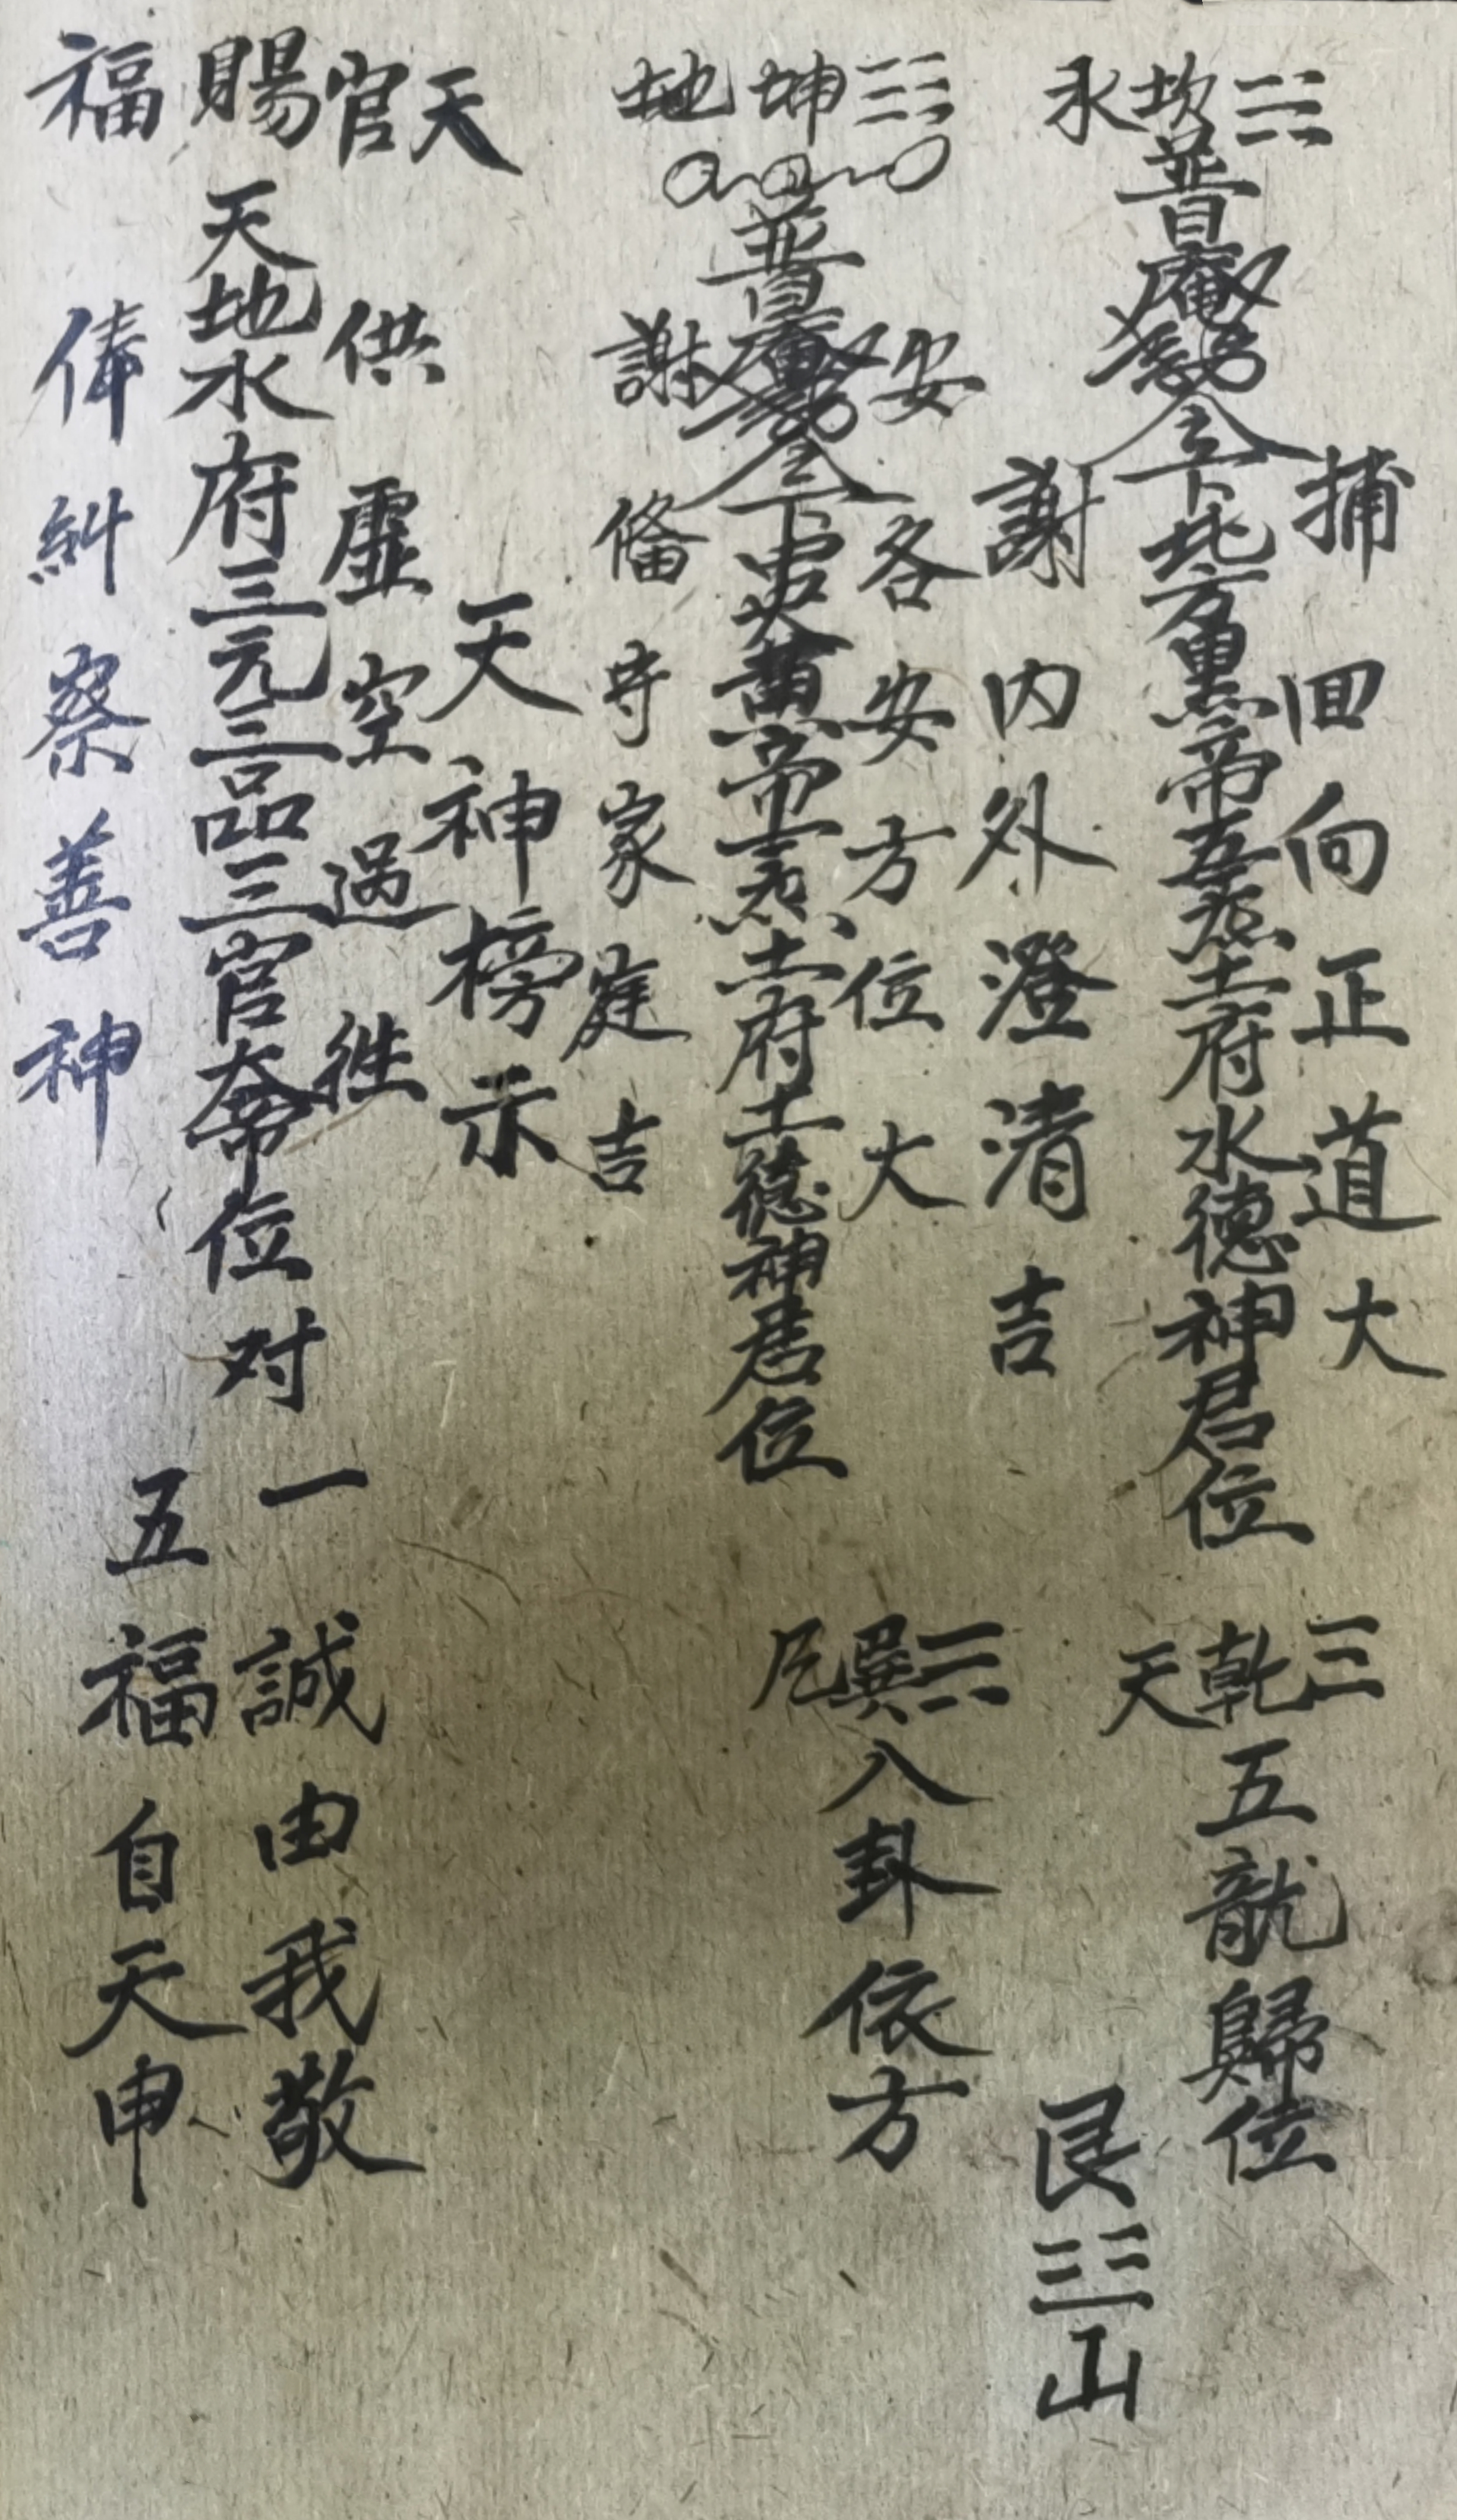 捕回向正道大
☵坎水
普庵 令下北方黑帝五炁土府水德神君位
謝内外澄清吉
☰乾天
五龍歸位
艮☶山
安各安方位大
☷坤地
普庵 令下中央黄帝一炁土府土德神君位
謝俻守家庭吉
☴巽
八卦依方
天官賜福
天神榜示
供虚空過徃
天地水府三元三品三官大帝位
俸糾察善神
对
一誠由我敬
五福自天申